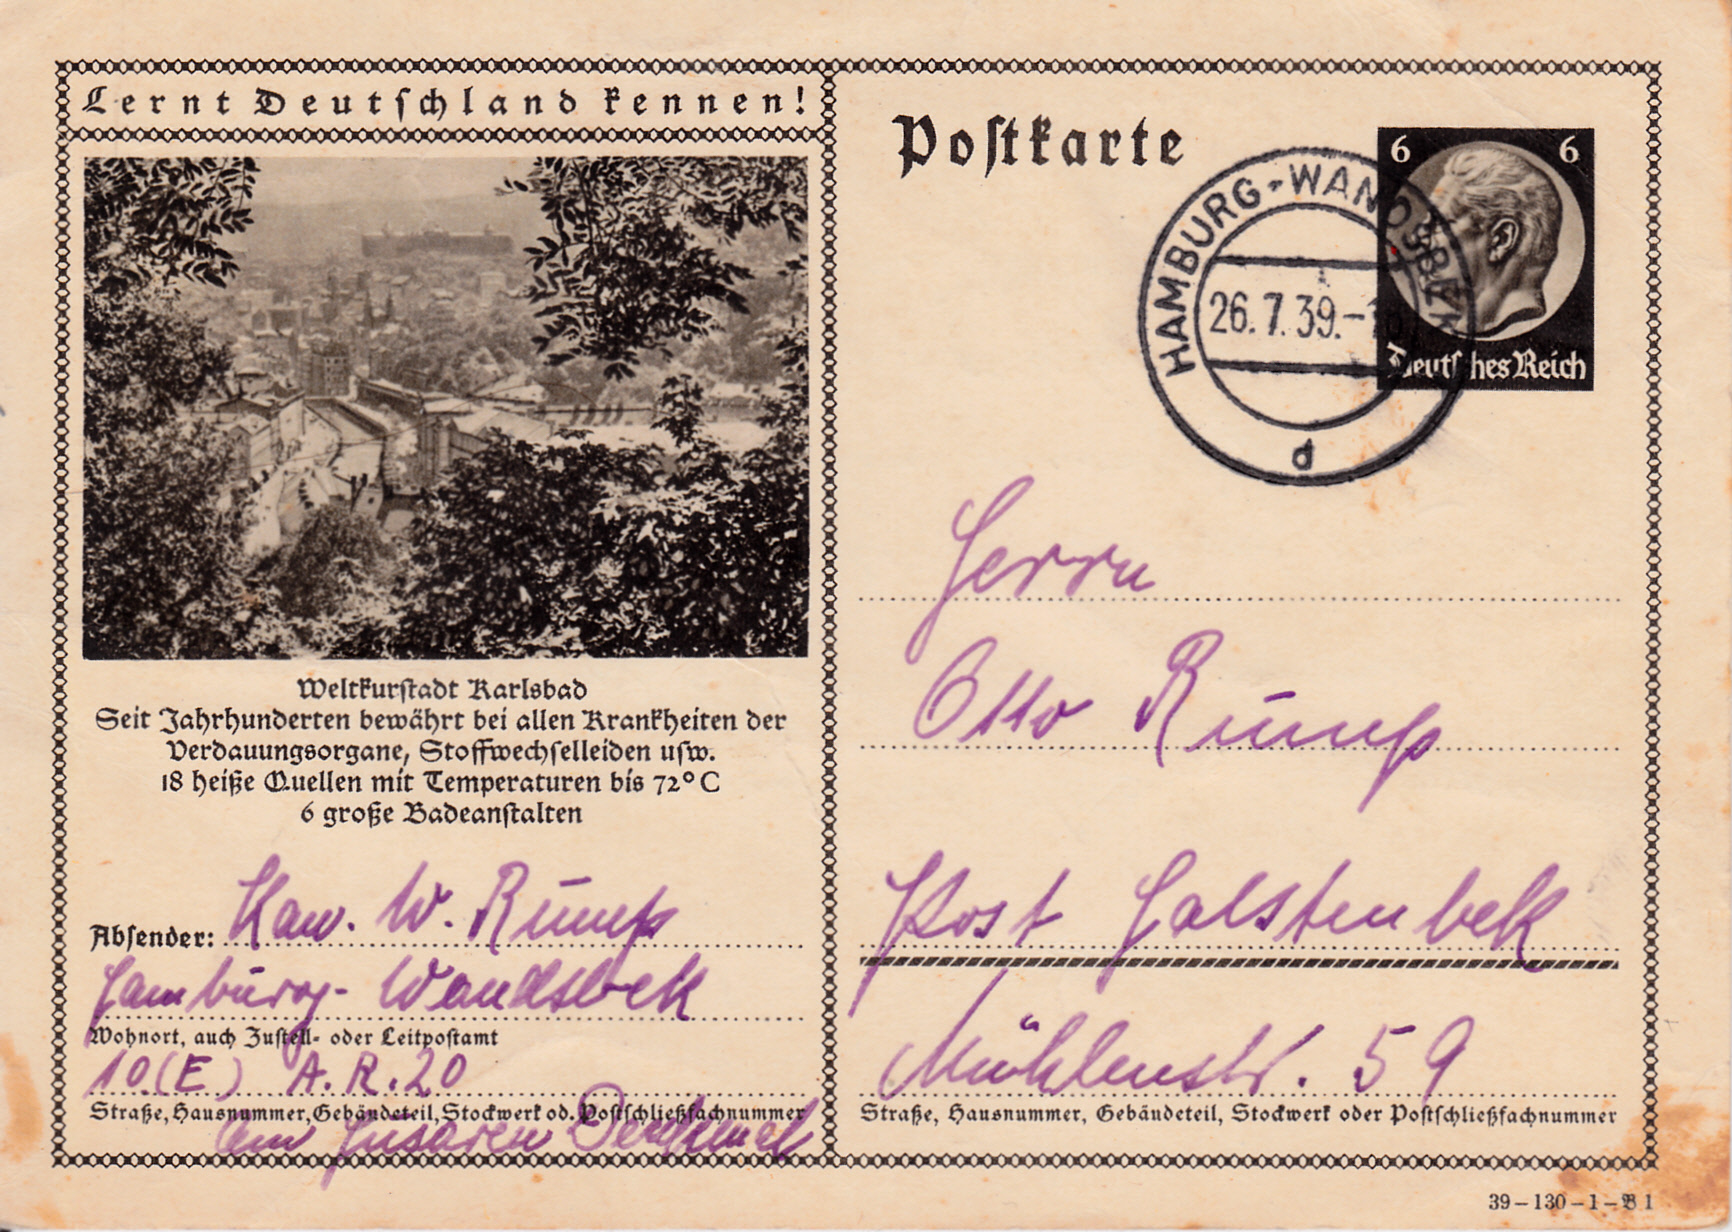 Lernt Deutschland kennen!
Weltkurstadt Karlsbad
Seit Jahrhunderten bewährt bei allen Krankheiten der
Verdauungsorgane, Stoffwechselleiden usw.
18 heiße Quellen mit Temperaturen bis 72° C
6 große Badeanstalten
Absender: Kan. W. Rump
Hamburg-Wandsbek
Wohnort, auch Zustell- oder Leitpostamt
10(E) A.R.20
Straße, Hausnummer, Gebäudeteil, Stockwerk od. Postschließfachnummer
am Husaren Denkmal
Postkarte
HAMBURG-WANDSBEK
26.7.39.-
d
6 6
Deutsches Reich
Herrn
Otto Rump
Post Halstenbek
Mühlenstr. 59
Straße, Hausnummer, Gebäudeteil, Stockwerk oder Postschließfachnummer
39-130-1-B 1